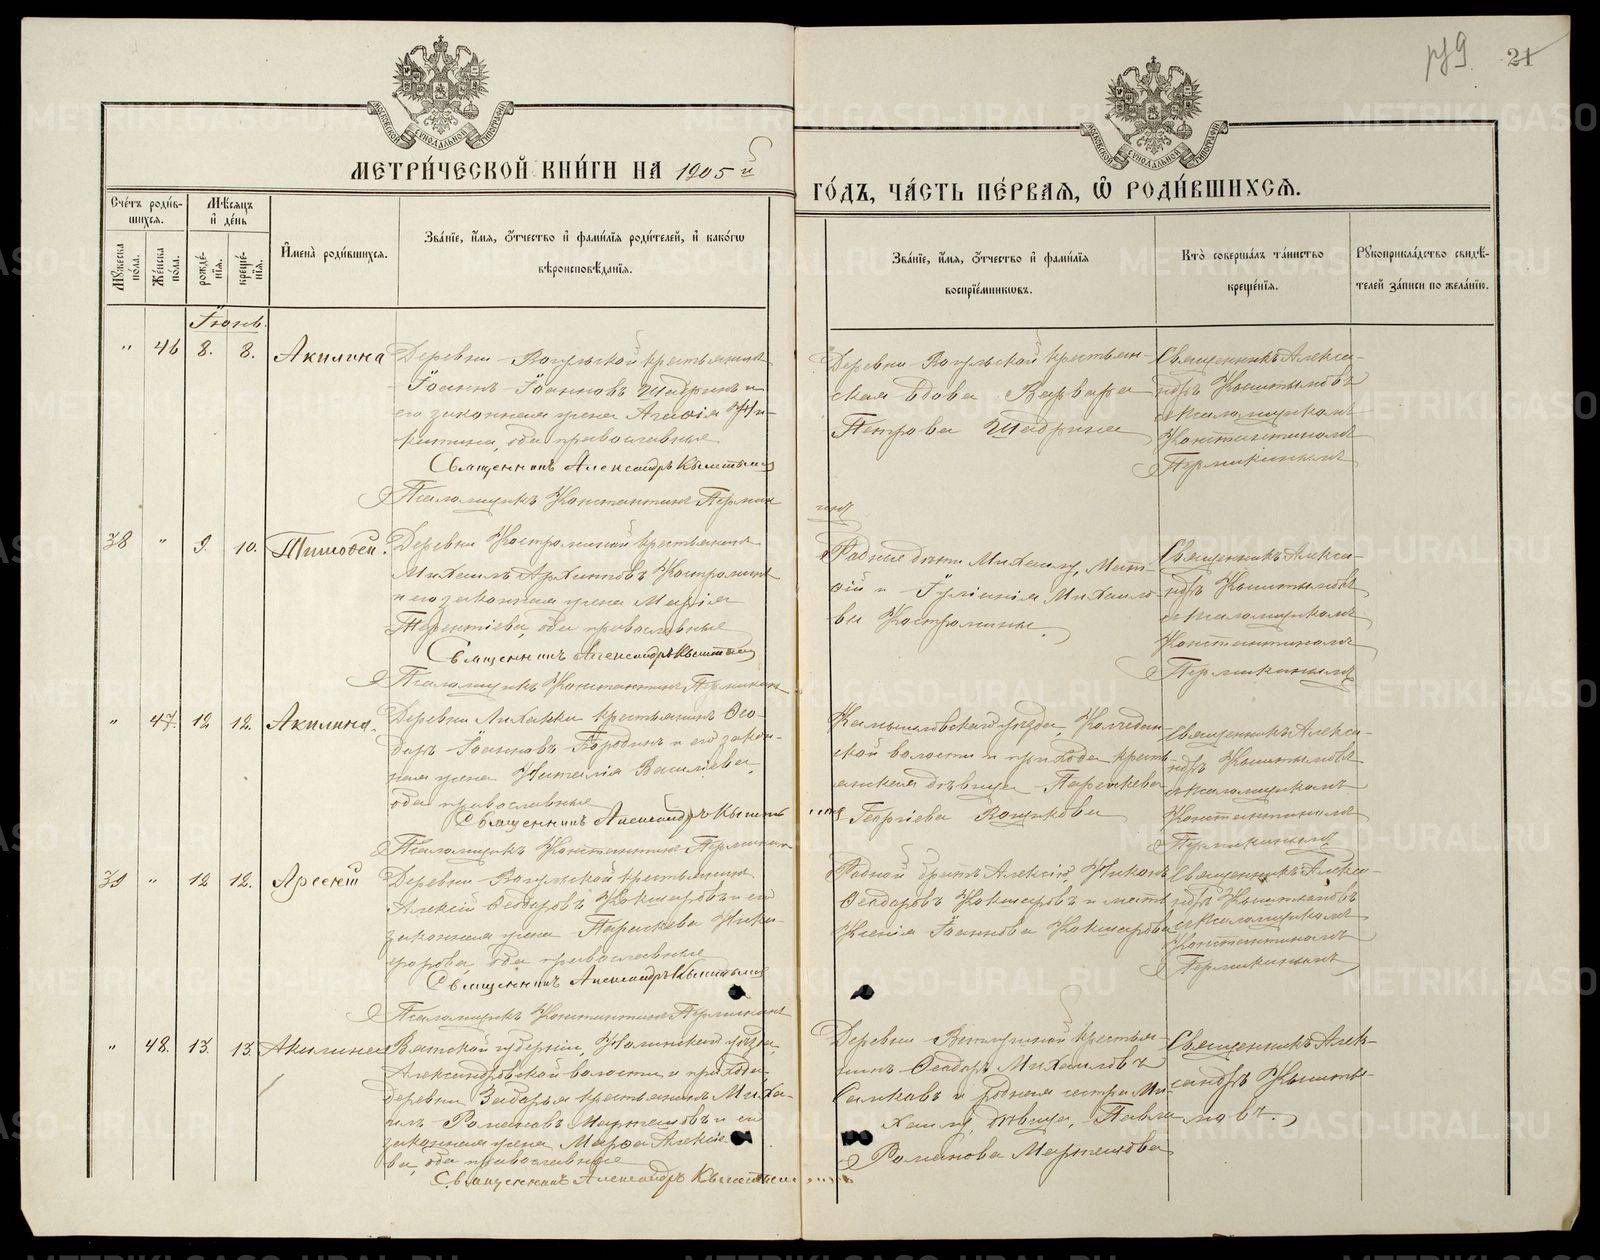 рѱ9. 21
МОСКОВСКОЙ СѴНОДАЛЬНОЙ ТИПОГРАФІИ
МОСКОВСКОЙ СѴНОДАЛЬНОЙ ТИПОГРАФІИ
МЕТРИ́ЧЕСКОЙ КНИ́ГИ НА 1905 й
ГО́ДЪ, ЧА́СТЬ ПЕ́РВАѦ, Ѽ РОДИ́ВШИХСѦ.
Сче́тъ роди́в-
шихсѧ.
Мѣ́сѧцъ
и҆ де́нь
Мꙋ́жеска пола.
Же́нска пола.
рожде́-
нїѧ.
креще́-
нїѧ.
И҆мена̀ роди́вшихсѧ.
Зва́нїе, и҆́мѧ, ѻ҆́тчество и҆ фами́лїѧ роди́телей, и҆ како́гѡ
вѣроисповѣ́данїѧ.
Зва́нїе, и҆́мѧ, ѻ҆́тчество и҆ фами́лїѧ
воспрїе́мникѡвъ.
Кто̀ соверша́лъ та́инство
креще́нїѧ.
Рꙋкоприкла́дство свидѣ́-
телей за́писи по жела́нїю.
Іюнь.
" 46 8. 8. Акилина
Деревни Вогульской крестьянинъ
Іоаннъ Іоанновъ Шадринъ и
его законная жена Агаѳія Ни-
китина, оба православные
Священникъ Александръ Кыштымовъ
Псаломщикъ Константинъ Пермикинъ
Деревни Вогульской крестьян-
ская вдова Варвара
Петрова Шадрина
Священникъ Алекса-
ндръ Кыштымовъ
съ псаломщикомъ
Константиномъ
Пермикинымъ
38 " 9. 10. Тимоѳей.
Деревни Костроминой крестьянинъ
Михаилъ Архиповъ Костроминъ
и его законная жена Марія
Терентіева, оба православные
Священникъ Александръ Кыштымовъ
Псаломщикъ Константинъ Пермикинъ
Родные дѣти Михаилу,
и Іуліанія Михаило-
вы Костромины.
Священникъ Алекса-
ндръ Кыштымовъ
съ псаломщикомъ
Константиномъ
Пермикинымъ
" 47. 12 12. Акилина.
Деревни крестьянинъ Ѳео-
доръ Іоанновъ Бородинъ и его закон-
ная жена Наталія Васильева,
оба православные
Священникъ Александръ Кыштымовъ
Псаломщикъ Константинъ Пермикинъ
Камышловскаго уѣзда, Колчедан-
ской волости и прихода кресть-
янская дѣвица Параскева
Георгіева
Священникъ Алекса-
ндръ Кыштымовъ
съ псаломщикомъ
Константиномъ
Пермикинымъ
39 " 12 12. Арсеній
Деревни Вогульской крестьянинъ
Алексій Ѳеодоровъ Кокшаровъ и его
законная жена Параскева Ники-
форова, оба православные
Священникъ Александръ Кыштымовъ
Псаломщикъ Константинъ Пермикинъ
Родной братъ Алексію, Никонъ
Ѳеодоровъ Кокшаровъ и мать
Ксенія Іоаннова Кокшарова
Священникъ Алекса-
ндръ Кыштымовъ
съ псаломщикомъ
Константиномъ
Пермикинымъ
" 48. 13. 13. Акилина
Вятской губерніи, Нолинскаго уѣзда,
Александровской волости и прихода,
деревни крестьянинъ Миха-
илъ Романовъ и его
законная жена Марѳа Алексіе-
ва, оба православные
Священникъ Александръ Кыштымовъ
Деревни крестья-
нинъ Ѳеодоръ Михаиловъ
и родная сестра Ми-
хаилу, дѣвица, Павла
Романова
Священникъ Алек-
сандръ Кышты-
мовъ.
METRIKI.GASO-URAL.RU